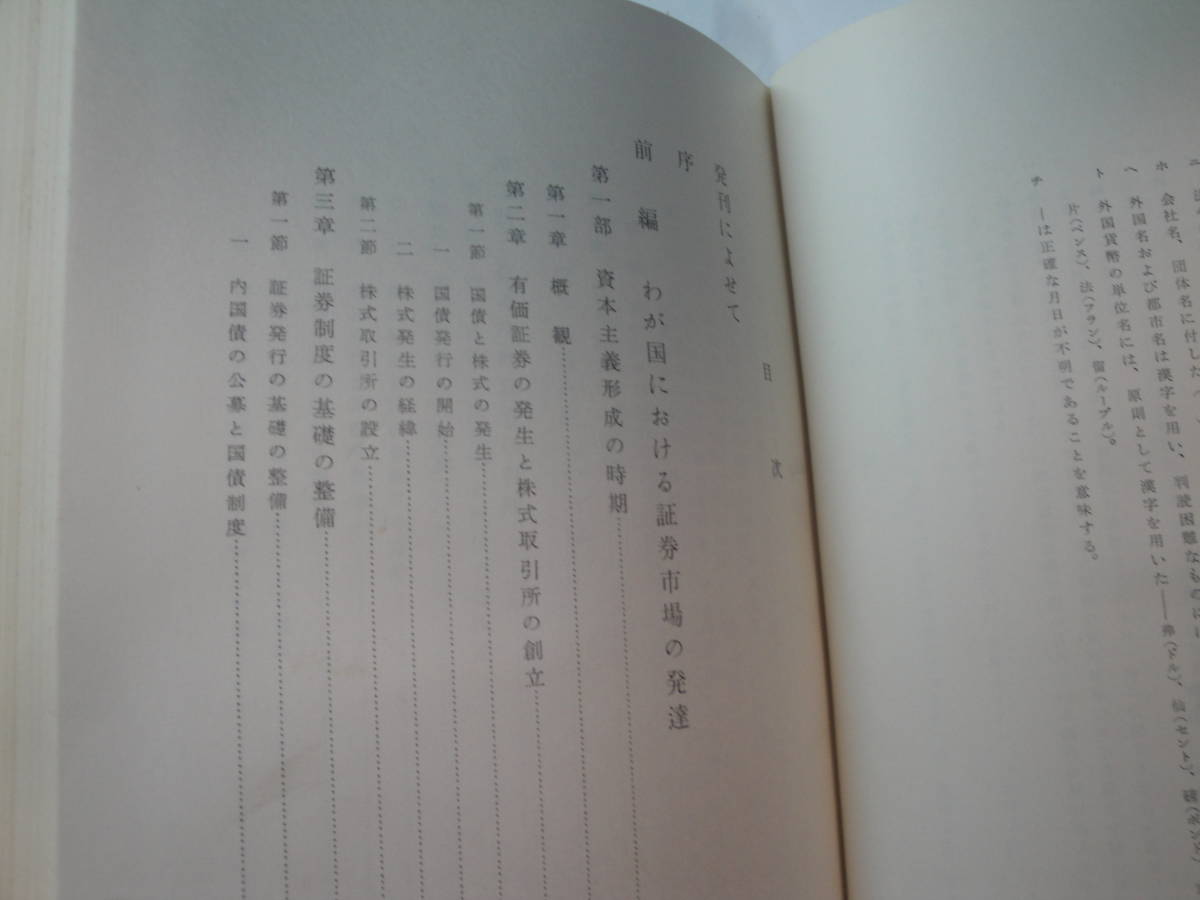 ホ 会社名、団体名に付した
ヘ 外国名および都市名は漢字を用い、判読困難なものに
ト 外国貨幣の単位名には、原則として漢字を用いた――弗(ドル)、仙(セント)、磅(ポンド)
片(ペンス)、法(フラン)、留(ルーブル)。
チ ―は正確な月日が不明であることを意味する。
目次
発刊によせて
序
前編 わが国における証券市場の発達
第一部 資本主義形成の時期
第一章 概観
第二章 有価証券の発生と株式取引所の創立
第一節 国債と株式の発生
一 国債発行の開始
二 株式発生の経緯
第二節 株式取引所の設立
第三章 証券制度の基礎の整備
第一節 証券発行の基礎の整備
一 内国債の公募と国債制度